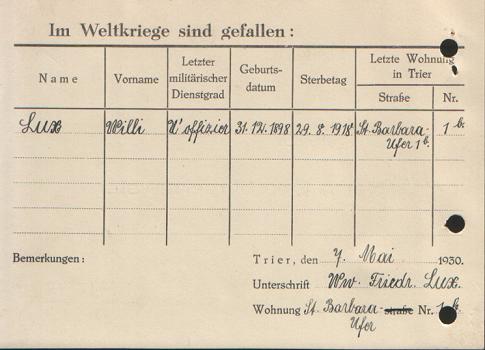 Im Weltkriege sind gefallen:
Name Vorname Letzter militärischer Dienstgrad Geburts-datum Sterbetag Letzte Wohnung in Trier
Straße Nr.
Lux Willi U'offizier 31.12.1898 29.8.1918 St. Barbara- 1b.
Ufer 1b.
Bemerkungen:
Trier, den 7. Mai 1930.
Unterschrift Ww. Friedr. Lux.
Wohnung St. Barbara-straße Nr. 1b.
Ufer